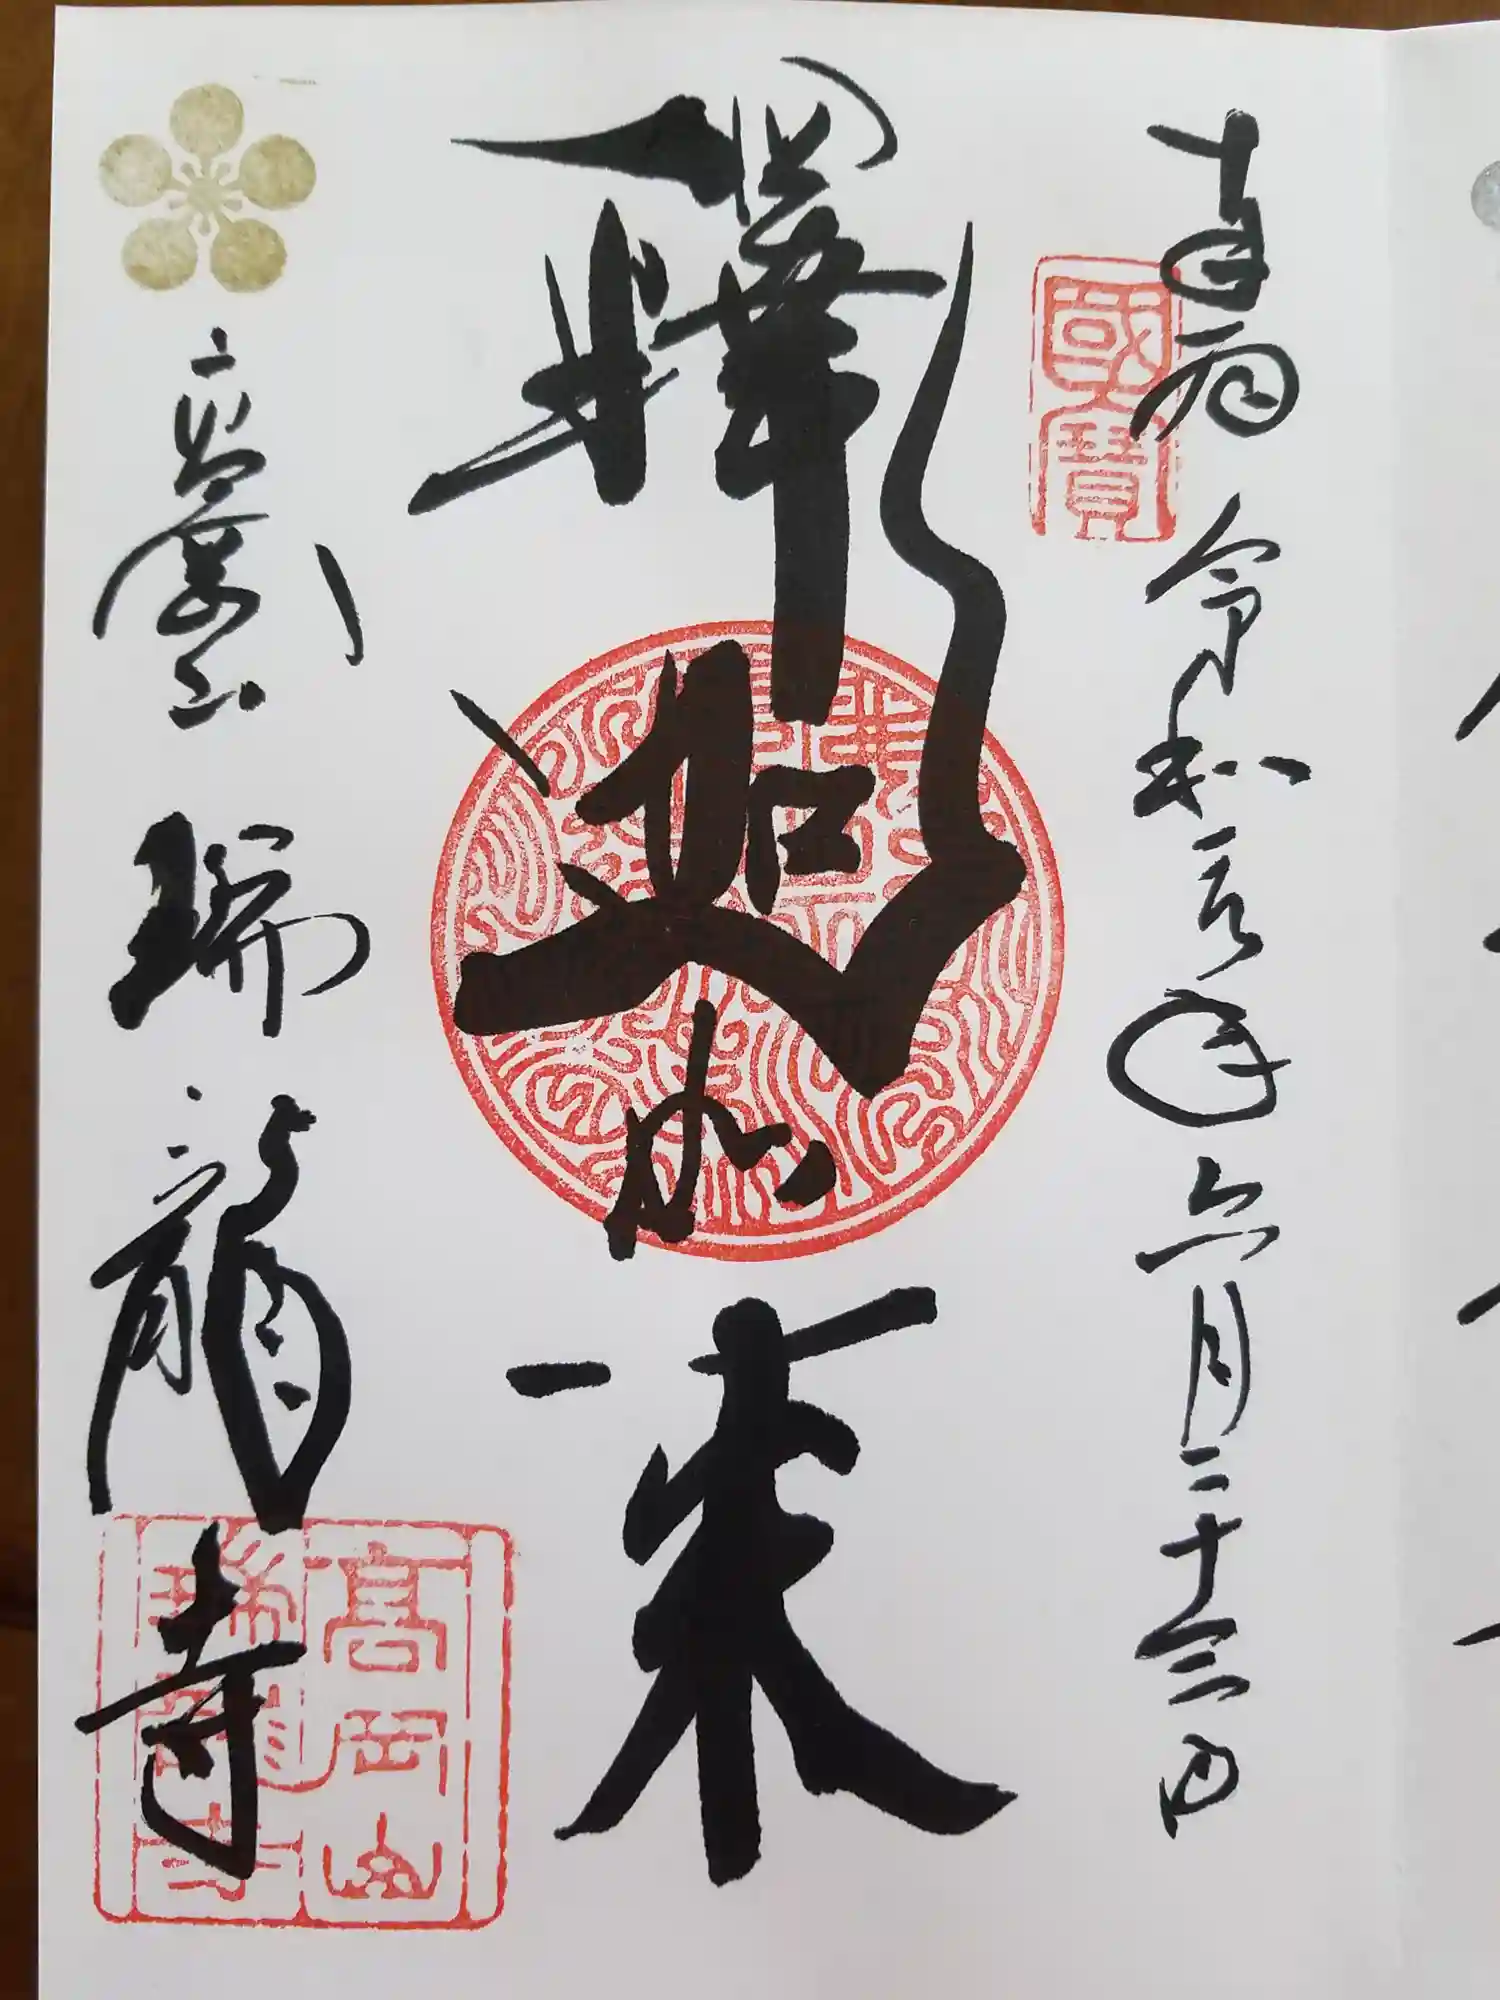 奉拝 令和元年六月二十三日
國寶
釋迦如来
高岡山 瑞龍寺
高岡山
瑞龍寺